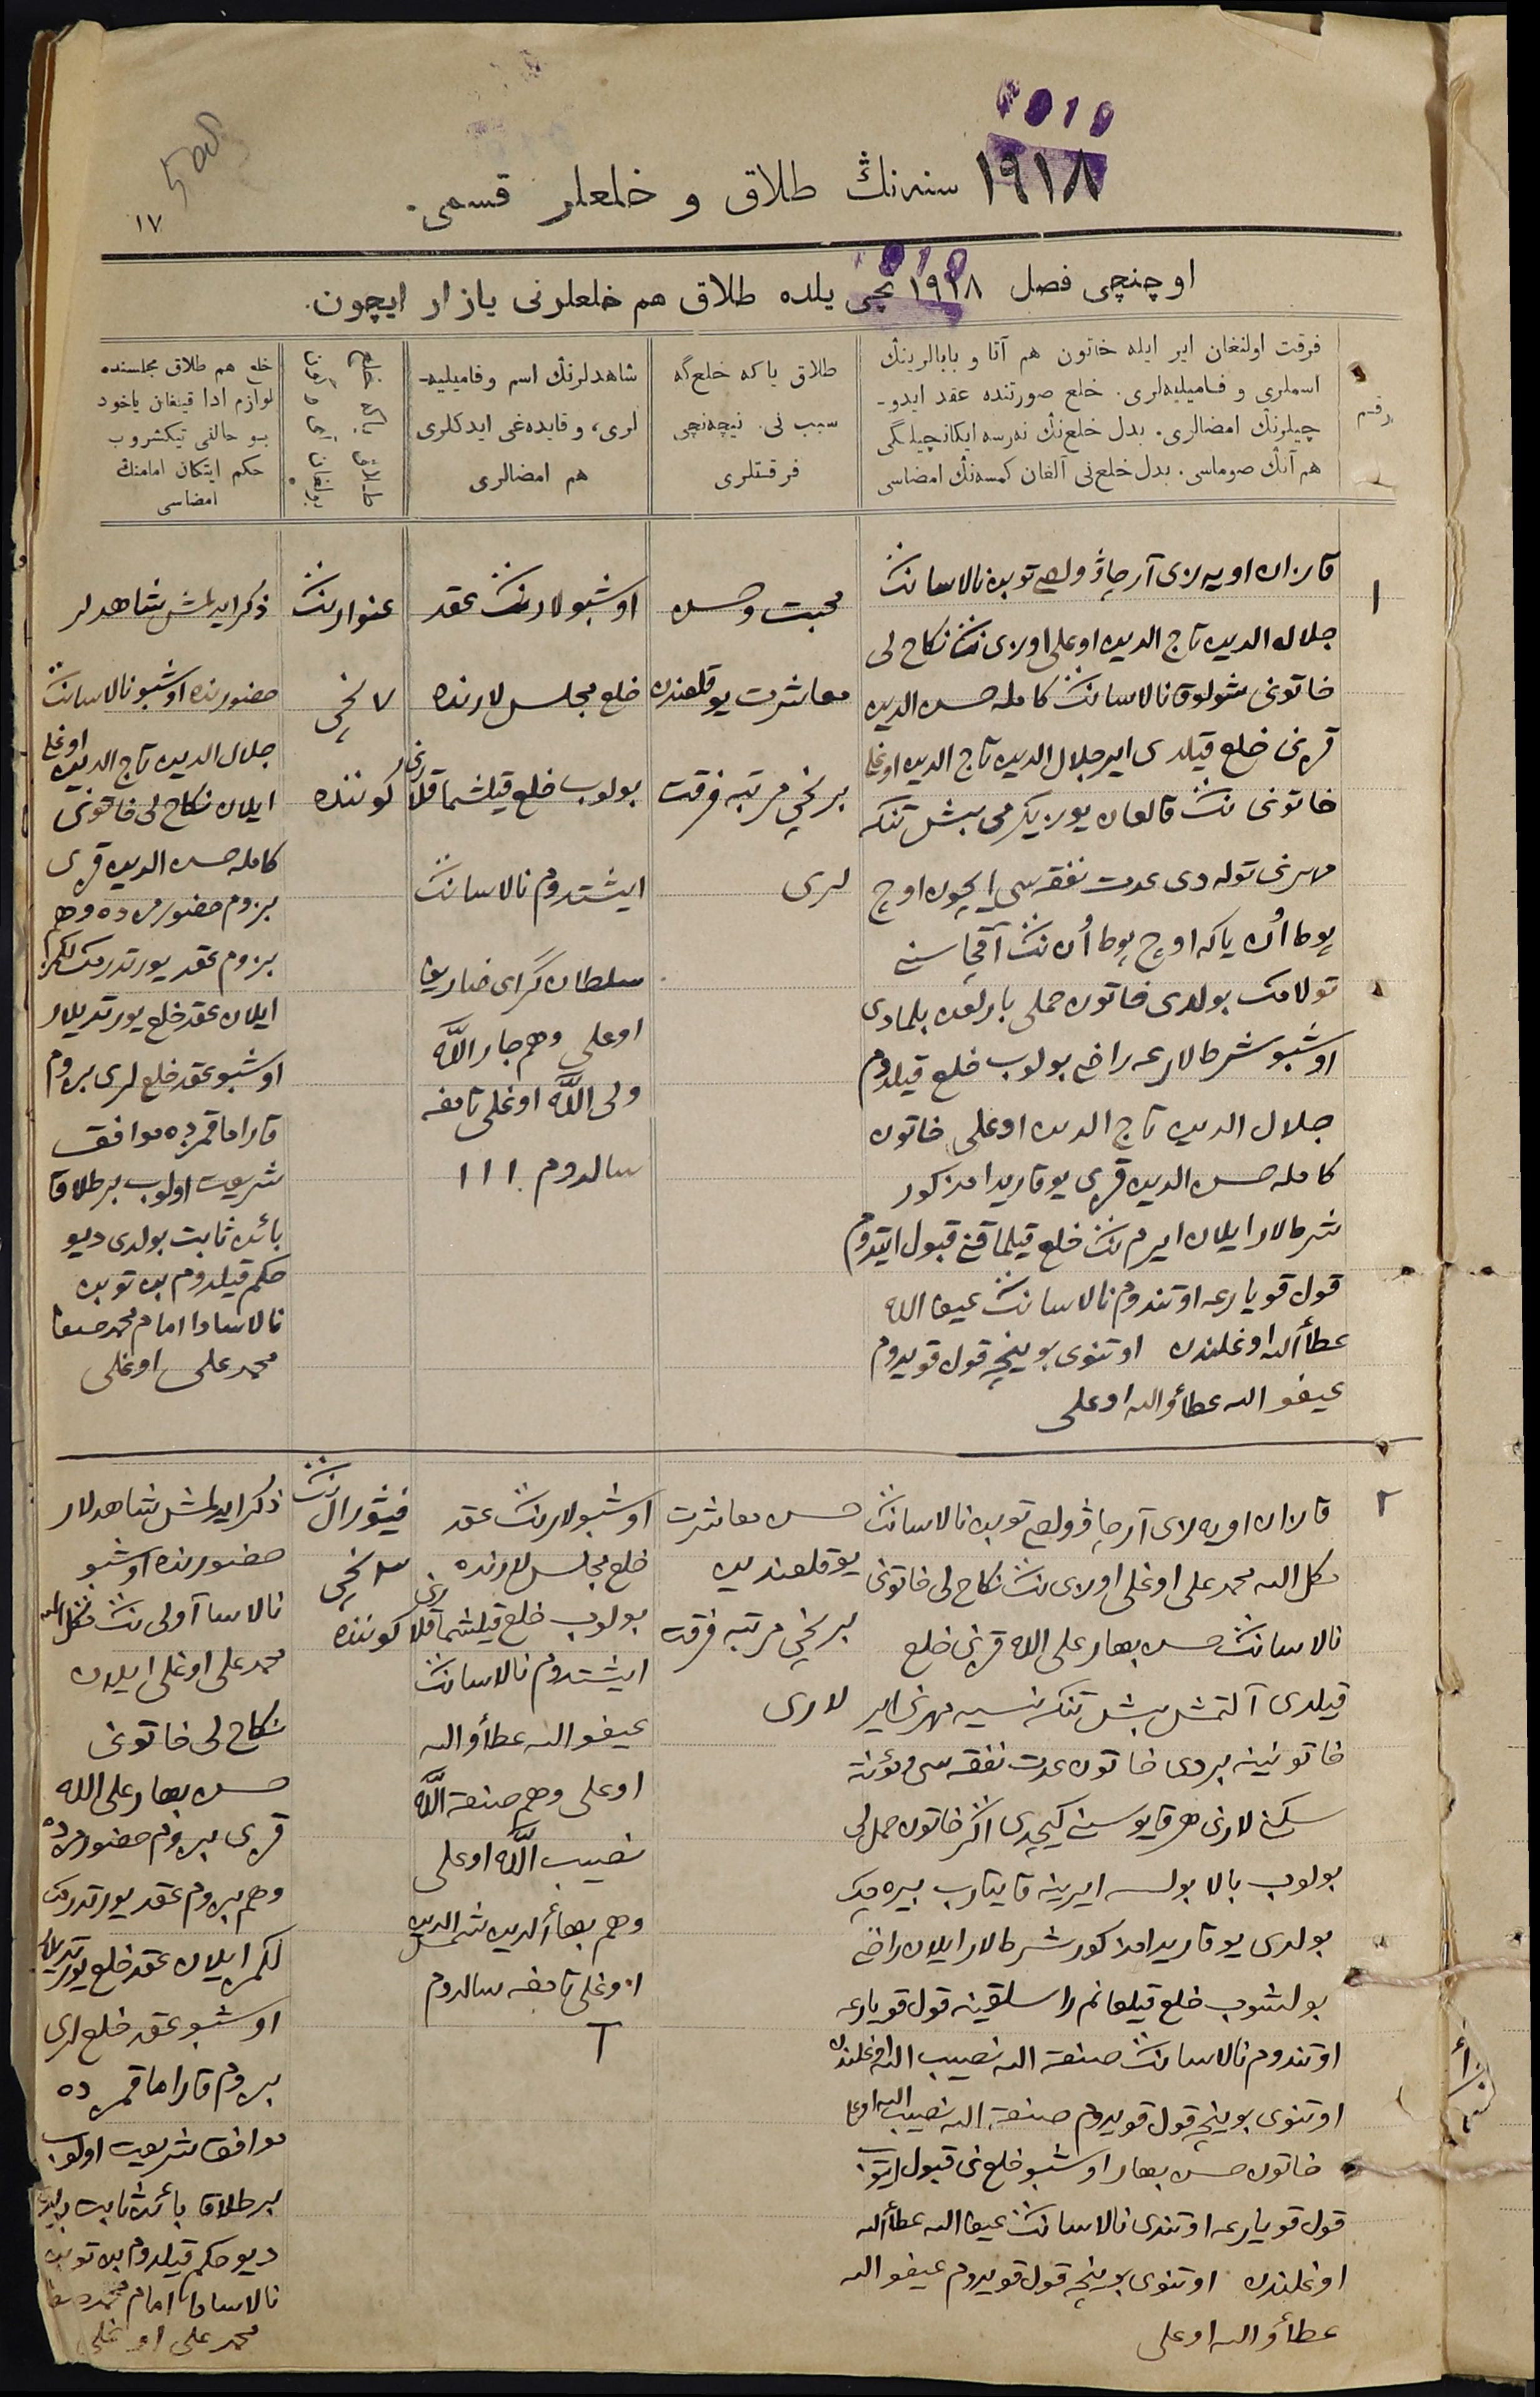 ١٩١٩
١٩١٨ سنه‌نڭ طلاق و خلعلر قسمی.
١٧
اوچنچی فصل ١٩١٨ نچی یلده طلاق هم خلعلرنی یازار ایچون.
رقم
فرقت اولنغان ایر ایله خاتون هم آتا و بابالرینڭ
اسملری و فامیلیه‌لری. خلع صورتنده عقد ایدو-
چیلرنڭ امضالری. بدل خلع‌نڭ نه‌رسه ایکانچیلگی
هم آنڭ صوماسی. بدل خلع‌نی آلغان کمسه‌نڭ امضاسی
طلاق یا که خلع‌گه
سبب نی. نیچه‌نچی
فرقتلری
شاهدلرنڭ اسم وفامیلیه-
لری، و قایده‌غی ایدکلری
هم امضالری
طلاق یا که خلع
بولغان آی و کون
خلع هم طلاق مجلسنده
لوازم ادا قیلغان یاخود
بو حالنی تیکشروب
حکم ایتکان امامنڭ
امضاسی
١
قازان اویه‌زی آرچا ولصی توبان نالاسانڭ
جلال الدین تاج الدین اوغلی اوزی‌نڭ نکاح لی
خاتونی شولوق نالاسانڭ کامله حسن الدین
قزی‌نی خلع قیلدی ایر جلال الدین تاج الدین اوغلی
خاتونی نڭ قالغان یوز یکرمی بیش تنکه
مهرنی توله‌دی عدت نفقه سی ایچون اوچ
پوط اُن یاکه اوچ پوط اُن نڭ آقچاسنی
تولامک بولدی خاتون حملی بارلغن بلمادی
اوشبو شرطلارغه راضی بولوب خلع قیلدوم
جلال الدین تاج الدین اوغلی خاتون
کامله حسن الدین قزی یوقاریدا مذکور
شرطلار ایلان ایرم نڭ خلع قیلماقنی قبول ایتدوم
قول قویارغه اوتندوم نالاسانڭ عیفا الله
عطأ الله اوغلندن اوتنوی بوینچه قول قویدوم
عیفو الله عطأو الله اوغلی
محبت و حسن
معاشرت یوقلغندن
برنچی مرتبه فرقت
لری
اوشبولارنڭ عقد
خلع مجلس لارنده
بولوب خلع قیلشماقلارنی
ایشتدوم نالاسانڭ
سلطان گرای
اوغلی وهم جار الله
ولی الله اوغلی تامغه
سالدوم ١١١
غنوارنڭ
٧ نچی
کوننده
ذکر ایدلمش شاهدلر
حضورنده اوشبو نالاسانڭ
جلال الدین تاج الدین اوغلی
ایلان نکاح لی خاتونی
کامله حسن الدین قزی
بزوم حضورمزده وهم
بزوم عقد یورتدرمکلکمز
ایلان عقد خلع یورتدیلار
اوشبو عقد خلع لری بزوم
قاراماقمزده موافق
شریعت اولوب بر طلاق
بائن ثابت بولدی دیو
حکم قیلدوم بن توبان
نالاسادا امام محمد صفا
محمد علی اوغلی
٢
قازان اویه‌زی آرچا ولصی توبان نالاسانڭ
محمد علی اوغلی اوزی‌نڭ نکاح لی خاتونی
نالاسانڭ حسن بهار علی الله قزی‌نی خلع
قیلدی آلتمش بیش تنکه نسیه مهرنی ایر
خاتونینه بیردی خاتون عدت نفقه سی مؤنه
سکنی لارنی هر قایوسنی کیچدی اگر خاتون حمل لی
بولوب بالا بولسه ایرینه قایتارب بیره‌جک
بولدی یوقاریدا مذکور شرطلار ایلان راضی
بولشوب خلع قیلغانم راسلقینه قول قویارغه
اوتندوم نالاسانڭ صنعة الله نصیب الله اوغلندن
اوتنوی بوینچه قول قویدوم صنعة الله نصیب الله اوغلی
خاتون حسن بهار اوشبو خلع‌نی قبول ایتوب
قول قویارغه اوتندی نالاسانڭ عیفا الله عطأ الله
اوغلندن اوتنوی بوینچه قول قویدوم عیفو الله
عطأو الله اوغلی
حسن معاشرت
یوقلغندین
برنچی مرتبه فرقت
لاری
اوشبولارنڭ عقد
خلع مجلس لارنده
بولوب خلع قیلشماقلارنی
ایشتدوم نالاسانڭ
عیفو الله عطأو الله
اوغلی وهم صنعة الله
نصیب الله اوغلی
وهم بهأ الدین شمس الدین
اوغلی تامغه سالدوم
T
فیئورالنڭ
٣ نچی
کوننده
ذکر ایدلمش شاهدلار
حضورنده اوشبو
نالاسا آولی نڭ
محمد علی اوغلی ایلان
نکاح لی خاتونی
حسن بهار علی الله
قزی بزوم حضورمزده
وهم بزوم عقد یورتدرمک
لکمز ایلان عقد خلع یورتدیلار
اوشبو عقد خلع لری
بزوم قاراماقمزده
موافق شریعت اولوب
بر طلاق بائن ثابت بولدی
دیو حکم قیلدوم بن توبان
نالاسادا امام محمد صفا
محمد علی اوغلی